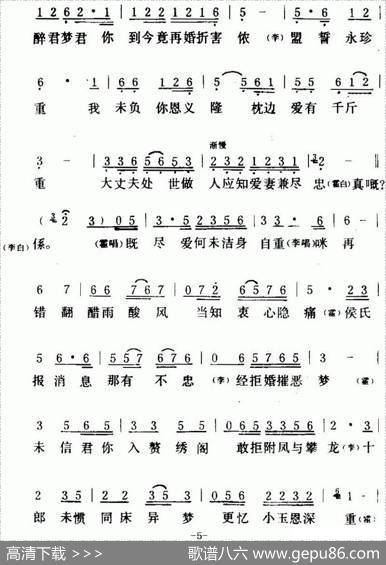 1 2 6 2·1 1 1 2 2 1 2 1 6 5 5·6 1·2
醉君梦君 你 到今竟再婚折害 侬 (李) 盟 誓 永珍
6· 1 1 2 1 6 5 5 6 1 5 5 6 1 2
重 我 未负 你恩义 隆 枕边 爱有 千斤
3 - 3 3 6 5 6 5 3 渐慢 2 3 2 1 2 3 1
重 大丈夫处 世做 人应知爱妻兼尽 忠(霍白)真嘅?
( 2 3) 0 5 3·2 3 5 6 1·3 5
(李白)係。 (霍唱)既 尽 爱何未洁身 自重(李唱)咪 再
6 7 6 5 6 7 6 0 7 2 6 7 6 5 3 5
错 翻 醋雨 酸 风 当知 衷 心隐 痛(霍)侯氏
5 6·6 5 5 7 6 7 6 5· 0 6 5 7 6 5 3 -
报 消息 那有 不 忠 (李) 经拒婚摧恶 梦 (霍)
3 5 6 5 1 3 5 2 1 2 0 6 5 3 5 6 5 3 2 3
未 信君 你 入 赘 绣阁 敢拒附凤与攀 龙(李)十
2 3 5 5 3 5 3 2 3 5 6 1 -
郎 未惯 同床 异 梦 更忆 小玉恩深 重(霍)
—5—
高清下载 >>>>> 歌谱八六 www.gepu86.com